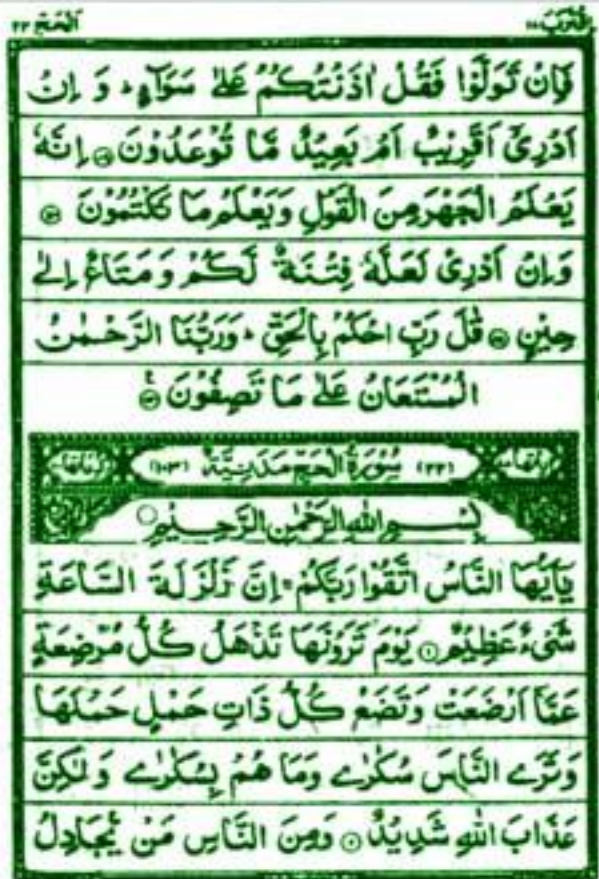 اقترب ١٧
الحج ٢٢
فَاِنْ تَوَلَّوْا فَقُلْ اٰذَنْتُكُمْ عَلٰى سَوَآءٍ ؕ وَ اِنْ
اَدْرِىْۤ اَقَرِيْبٌ اَمْ بَعِيْدٌ مَّا تُوْعَدُوْنَ ۝ اِنَّهٗ
يَعْلَمُ الْجَهْرَ مِنَ الْقَوْلِ وَيَعْلَمُ مَا تَكْتُمُوْنَ ۝
وَاِنْ اَدْرِىْ لَعَلَّهٗ فِتْنَةٌ لَّكُمْ وَمَتَاعٌ اِلٰى
حِيْنٍ ۝ قٰلَ رَبِّ احْكُمْ بِالْحَقِّ ؕ وَرَبُّنَا الرَّحْمٰنُ
الْمُسْتَعَانُ عَلٰى مَا تَصِفُوْنَ ۝
(٢٢) سُوْرَةُ الْحَجِّ مَدَنِيَّةٌ (١٠٣)
بِسْمِ اللّٰهِ الرَّحْمٰنِ الرَّحِيْمِ
يٰۤاَيُّهَا النَّاسُ اتَّقُوْا رَبَّكُمْ ۚ اِنَّ زَلْزَلَةَ السَّاعَةِ
شَىْءٌ عَظِيْمٌ ۝ يَوْمَ تَرَوْنَهَا تَذْهَلُ كُلُّ مُرْضِعَةٍ
عَمَّاۤ اَرْضَعَتْ وَتَضَعُ كُلُّ ذَاتِ حَمْلٍ حَمْلَهَا
وَتَرَى النَّاسَ سُكٰرٰى وَمَا هُمْ بِسُكٰرٰى وَلٰكِنَّ
عَذَابَ اللّٰهِ شَدِيْدٌ ۝ وَمِنَ النَّاسِ مَنْ يُّجَادِلُ